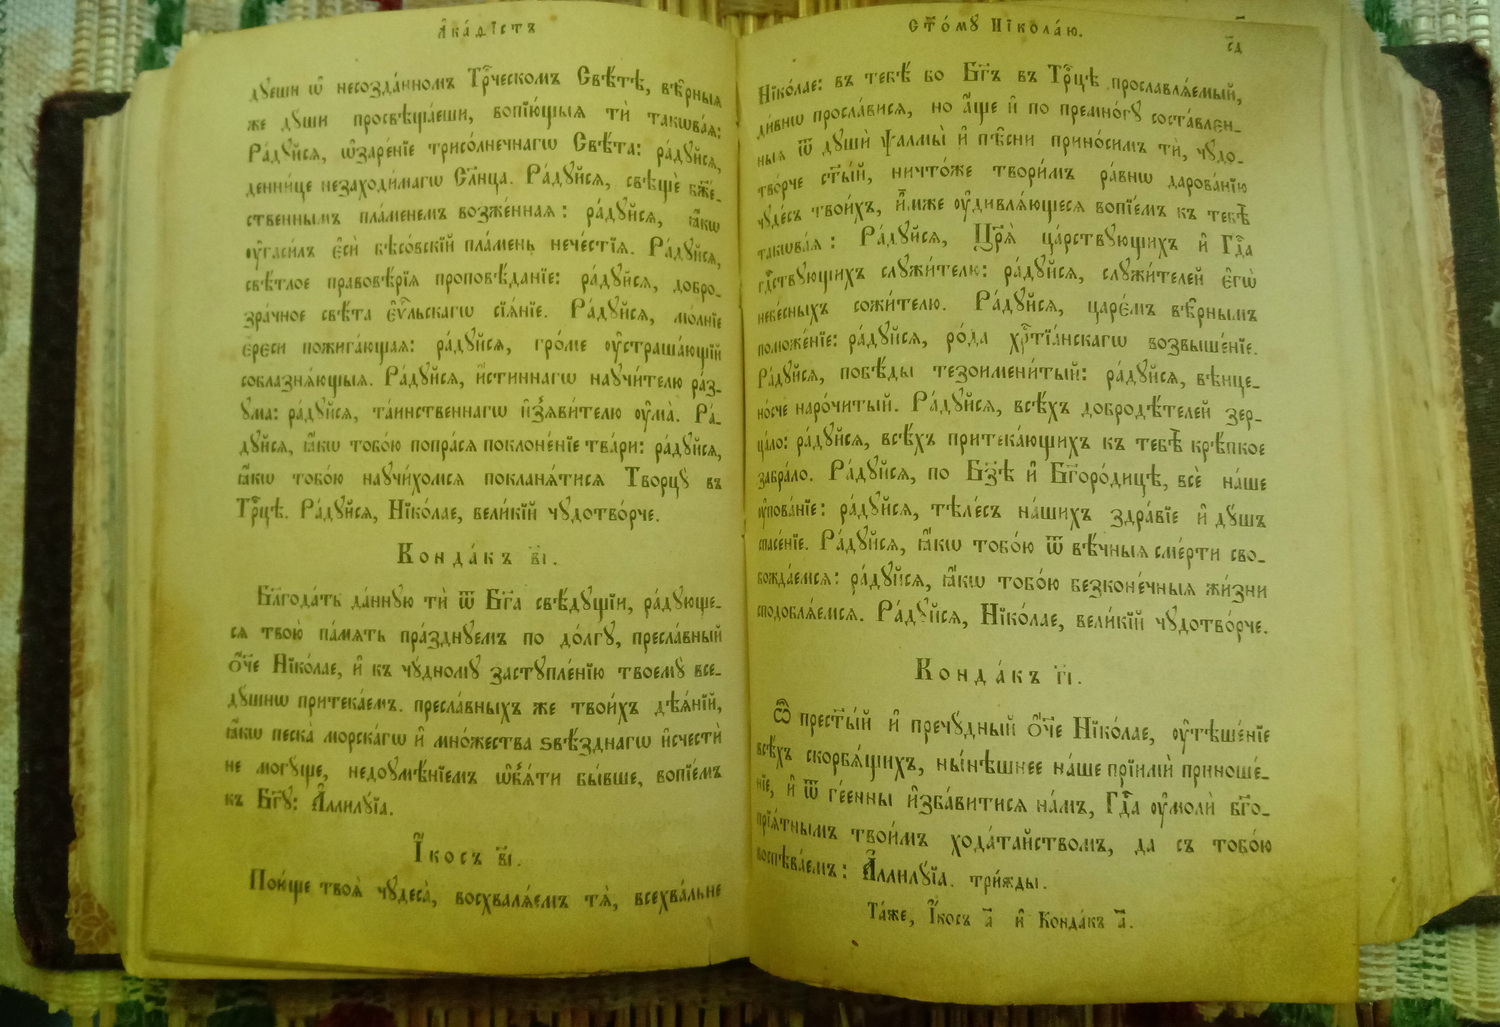 А҆ка́ѳїстъ
дꙋеши ѿ несозда́нномъ Трⷪ҇ческомъ Свѣ́тѣ, вѣ̑рныѧ
же дꙋши просвѣща́еши, вопїю́щыѧ тѝ такѡва́ѧ:
Ра́дꙋйсѧ, ѡ҆заре́нїе трисо́лнечнагѡ Свѣ́та: ра́дꙋйсѧ,
денни́це незаходи́магѡ Сл҃нца. Ра́дꙋйсѧ, свѣщѐ бж҃е-
ственнымъ пла́менемъ возже́нная: ра́дꙋйсѧ, ꙗ҆́кѡ
ᲂу҆гаси́лъ є҆сѝ бѣсо́вскїй пла́мень нече́стїѧ. Ра́дꙋйсѧ,
свѣ́тлое правовѣ́рїѧ проповѣ́данїе: ра́дꙋйсѧ, добро-
зра́чное свѣ́та є҆ѵⷢ҇льскагѡ сїѧ́нїе. Ра́дꙋйсѧ, мо́лнїе
є҆ре́си пожига́ющаѧ: ра́дꙋйсѧ, гро́ме ᲂу҆страша́ющїй
соблазнѧ́ющыѧ. Ра́дꙋйсѧ, и҆́стиннагѡ наꙋчи́телю ра́з-
ꙋма: ра́дꙋйсѧ, та́инственнагѡ и҆з̾ѧви́телю ᲂу҆ма̀. Ра́-
дꙋйсѧ, ꙗ҆́кѡ тобо́ю попра́сѧ поклоне́нїе тва́ри: ра́дꙋйсѧ,
ꙗ҆́кѡ тобо́ю наꙋчи́хомсѧ покланѧ́тисѧ Творцꙋ̀ въ
Трⷪ҇цѣ. Ра́дꙋйсѧ, Нїко́лае, вели́кїй чꙋдотво́рче.
Конда́къ в҃і.
Бл҃года́ть да́ннꙋю тѝ ѿ Бг҃а свѣ́дꙋщїи, ра́дꙋюще-
сѧ твою̀ па́мѧть пра́зднꙋемъ по до́лгꙋ, пресла́вный
ѻ҆́ч҃е Нїко́лае, и҆ къ чꙋ́дномꙋ застꙋпле́нїю твоемꙋ̀ все-
дꙋ́шнѡ притека́емъ. пресла́вныхъ же твои́хъ дѣѧ́нїй,
ꙗ҆́кѡ песка̀ морска́гѡ и҆ мно́жества ѕвѣ́зднагѡ и҆счестѝ
не могꙋ́ще, недоꙋмѣ́нїемъ ѡ҆б̾ѧ́ти бы́вше, вопїе́мъ
къ Бг҃ꙋ: А҆ллилꙋ́їа.
І҆́косъ в҃і.
Пою́ще твоѧ̑ чꙋдеса̀, восхвалѧ́емъ тѧ̀, всехва́льне
ст҃о́мꙋ Нїкола́ю.
с҃д
Нїко́лае: въ тебѣ́ бо Бг҃ъ въ Трⷪ҇цѣ прославлѧ́емый,
ди́внѡ просла́висѧ, но а҆́ще и҆ по премно́гꙋ соста́влен-
ныѧ ѿ дꙋшѝ ѱалмы̀ и҆ пѣ̑сни прино́симъ тѝ, чꙋдо-
тво́рче ст҃ы́й, ничто́же твори́мъ ра́внѡ дарова́нїю
чꙋде́съ твои́хъ, и҆́мже ᲂу҆дивлѧ́ющесѧ вопїе́мъ къ тебѣ̀
такѡва́ѧ: Ра́дꙋйсѧ, Цр҃ѧ̀ ца́рствꙋющихъ и҆ Гдⷭ҇а
гдⷭ҇твꙋющихъ слꙋжи́телю: ра́дꙋйсѧ, слꙋжи́телей є҆гѡ̀
небе́сныхъ сожи́телю. Ра́дꙋйсѧ, царє́мъ вѣ̑рнымъ
поможе́нїе: ра́дꙋйсѧ, ро́да хрⷭ҇тїа́нскагѡ возвыше́нїе.
Ра́дꙋйсѧ, побѣ́ды тезоимени́тый: ра́дꙋйсѧ, вѣнце-
но́сче наро́читый. Ра́дꙋйсѧ, всѣ́хъ добродѣ́телей зер-
ца́ло: ра́дꙋйсѧ, всѣ́хъ притека́ющихъ къ тебѣ̀ крѣ́пкое
забра́ло. Ра́дꙋйсѧ, по Бз҃ѣ и҆ Бг҃оро́дицѣ, всѐ на́ше
ᲂу҆пова́нїе: ра́дꙋйсѧ, тѣле́съ на́шихъ здра́вїе и҆ дꙋ́шъ
спасе́нїе. Ра́дꙋйсѧ, ꙗ҆́кѡ тобо́ю ѿ вѣ́чныѧ сме́рти сво-
божда́емсѧ: ра́дꙋйсѧ, ꙗ҆́кѡ тобо́ю безконе́чныѧ жи́зни
сподоблѧ́емсѧ. Ра́дꙋйсѧ, Нїко́лае, вели́кїй чꙋдотво́рче.
Конда́къ г҃і.
Ѽ прест҃ы́й и҆ пречꙋ́дный ѻ҆́ч҃е Нїко́лае, ᲂу҆тѣше́нїе
всѣ́хъ скорбѧ́щихъ, ны́нѣшнее на́ше прїимѝ приноше́-
нїе, и҆ ѿ гее́нны и҆зба́витисѧ на́мъ, Гдⷭ҇а ᲂу҆молѝ бг҃о-
прїѧ́тнымъ твои́мъ хода́тайствомъ, да съ тобо́ю
воспѣва́емъ: А҆ллилꙋ́їа. три́жды.
Та́же, І҆́косъ а҃ и҆ Конда́къ а҃.